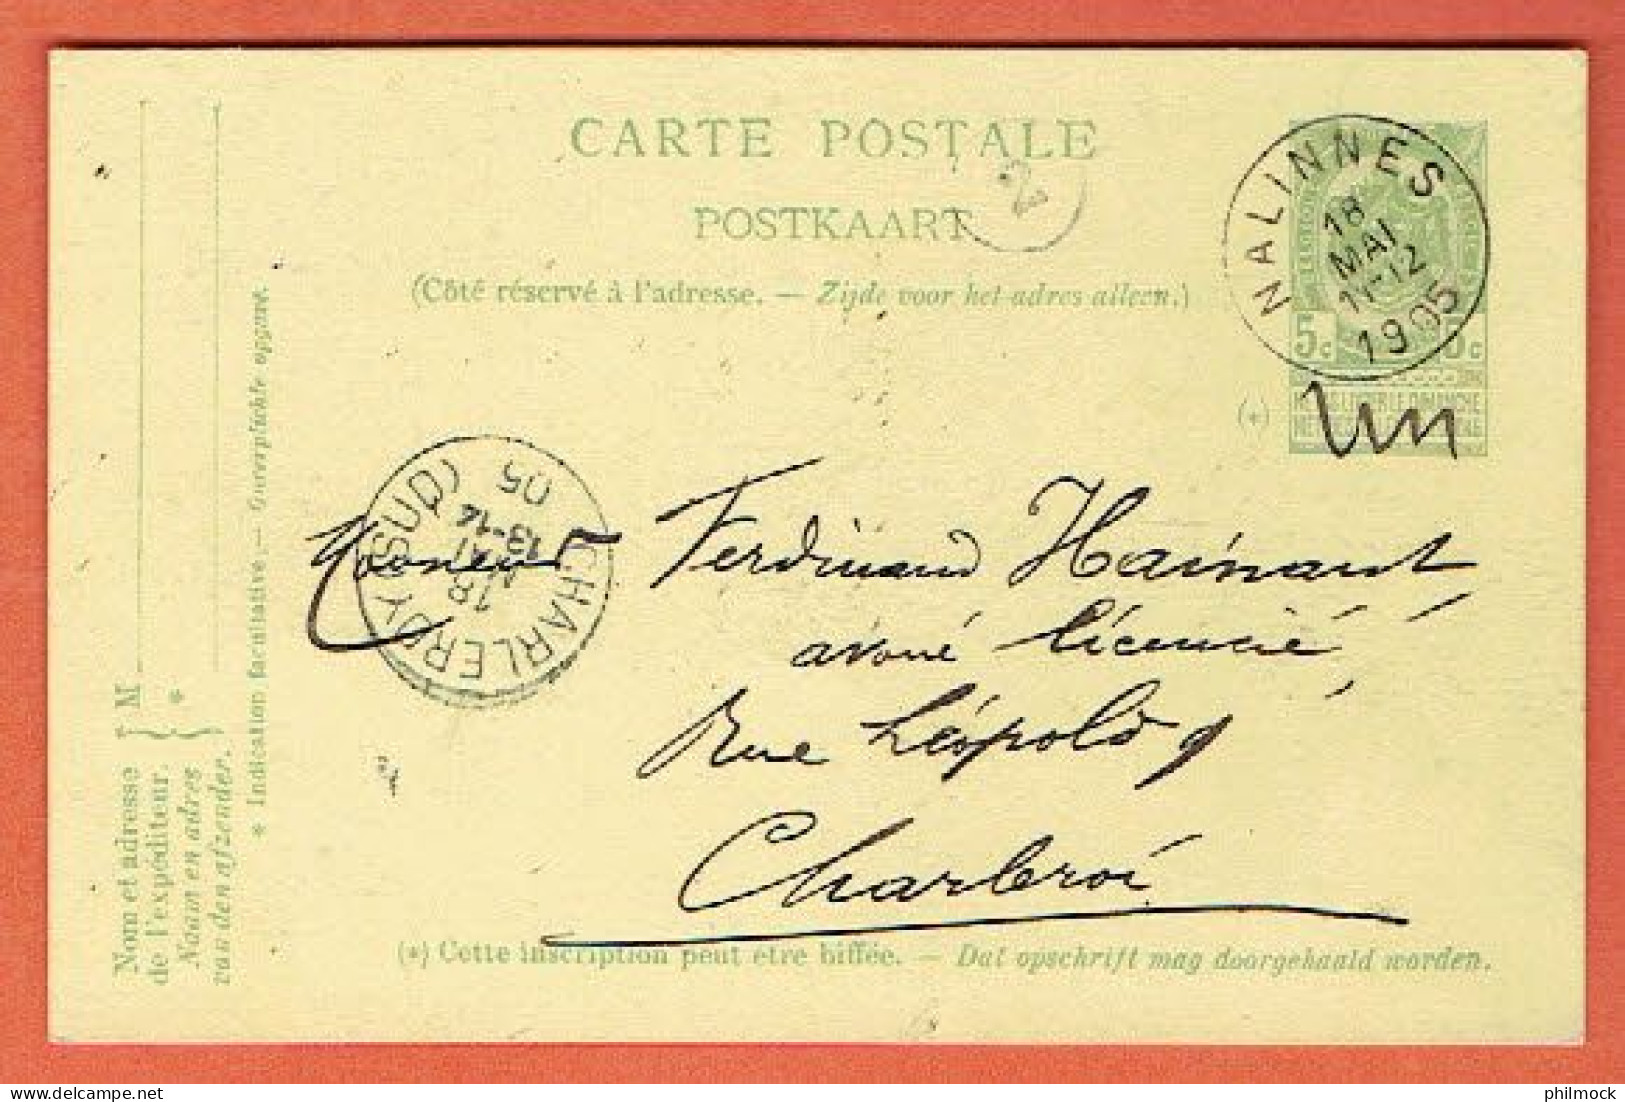 CARTE POSTALE
POSTKAART
(Côté réservé à l'adresse. — Zijde voor het adres alleen.)
MALINNES
18
MAI
11-12
1905
5c 5c
(*)
2
CHARLEROY (SUD)
18
MAI
13-14
05
Monsieur Ferdinand Hainaut
avoué licencié,
Rue Léopold
Charleroi
(*) Cette inscription peut être biffée. — Dat opschrift mag doorgehaald worden.
M
*
Nom et adresse
de l'expéditeur.
Naam en adres
van den afzender.
* Indication facultative. — Onverplichte opgave.
philmock